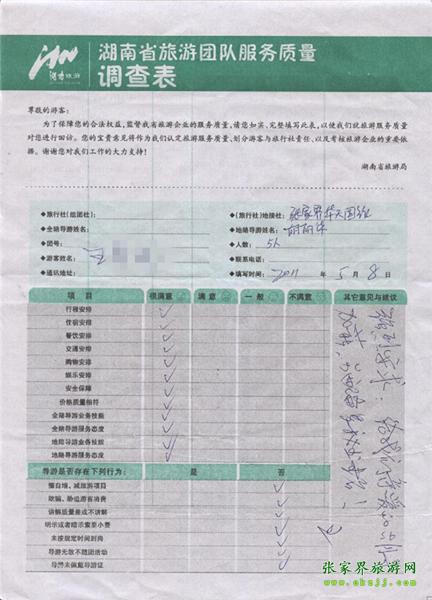 湖南旅游
湖南省旅游团队服务质量
调查表
尊敬的游客:
为了保障您的合法权益,监督我省旅游企业的服务质量,请您如实、完整填写此表,以使我们就旅游服务质量
对您进行回访。您的宝贵意见将作为我们认定旅游服务质量、划分游客与旅行社责任、以及考核旅游企业的重要依
据。谢谢您对我们工作的大力支持!
湖南省旅游局
◆旅行社(组团社):
◆(旅行社)地接社: 张家界华天国旅
◆全陪导游姓名:
◆地陪导游姓名:
◆团号:
◆人数: 5人
◆游客姓名: 王
◆联系电话:
◆通讯地址:
◆填写时间: 2011 年 5 月 8 日
项 目 很满意 满 意 一 般 不满意 其它意见与建议
行程安排
住宿安排
餐饮安排
交通安排
购物安排
娱乐安排
安全保障
价格质量相符
全陪导游业务技能
全陪导游服务态度
地陪导游业务技能
地陪导游服务态度
导游是否存在下列行为: 是 否
擅自增、减旅游项目
欺骗、胁迫游客消费
讲解质量差或不讲解
明示或者暗示索要小费
未按规定时间到岗
导游无故不随团活动
导游未佩戴导游证
张家界旅游网
www.okzjj.com